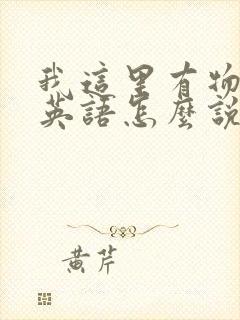 我這里有物
英語怎麽說
黄芹